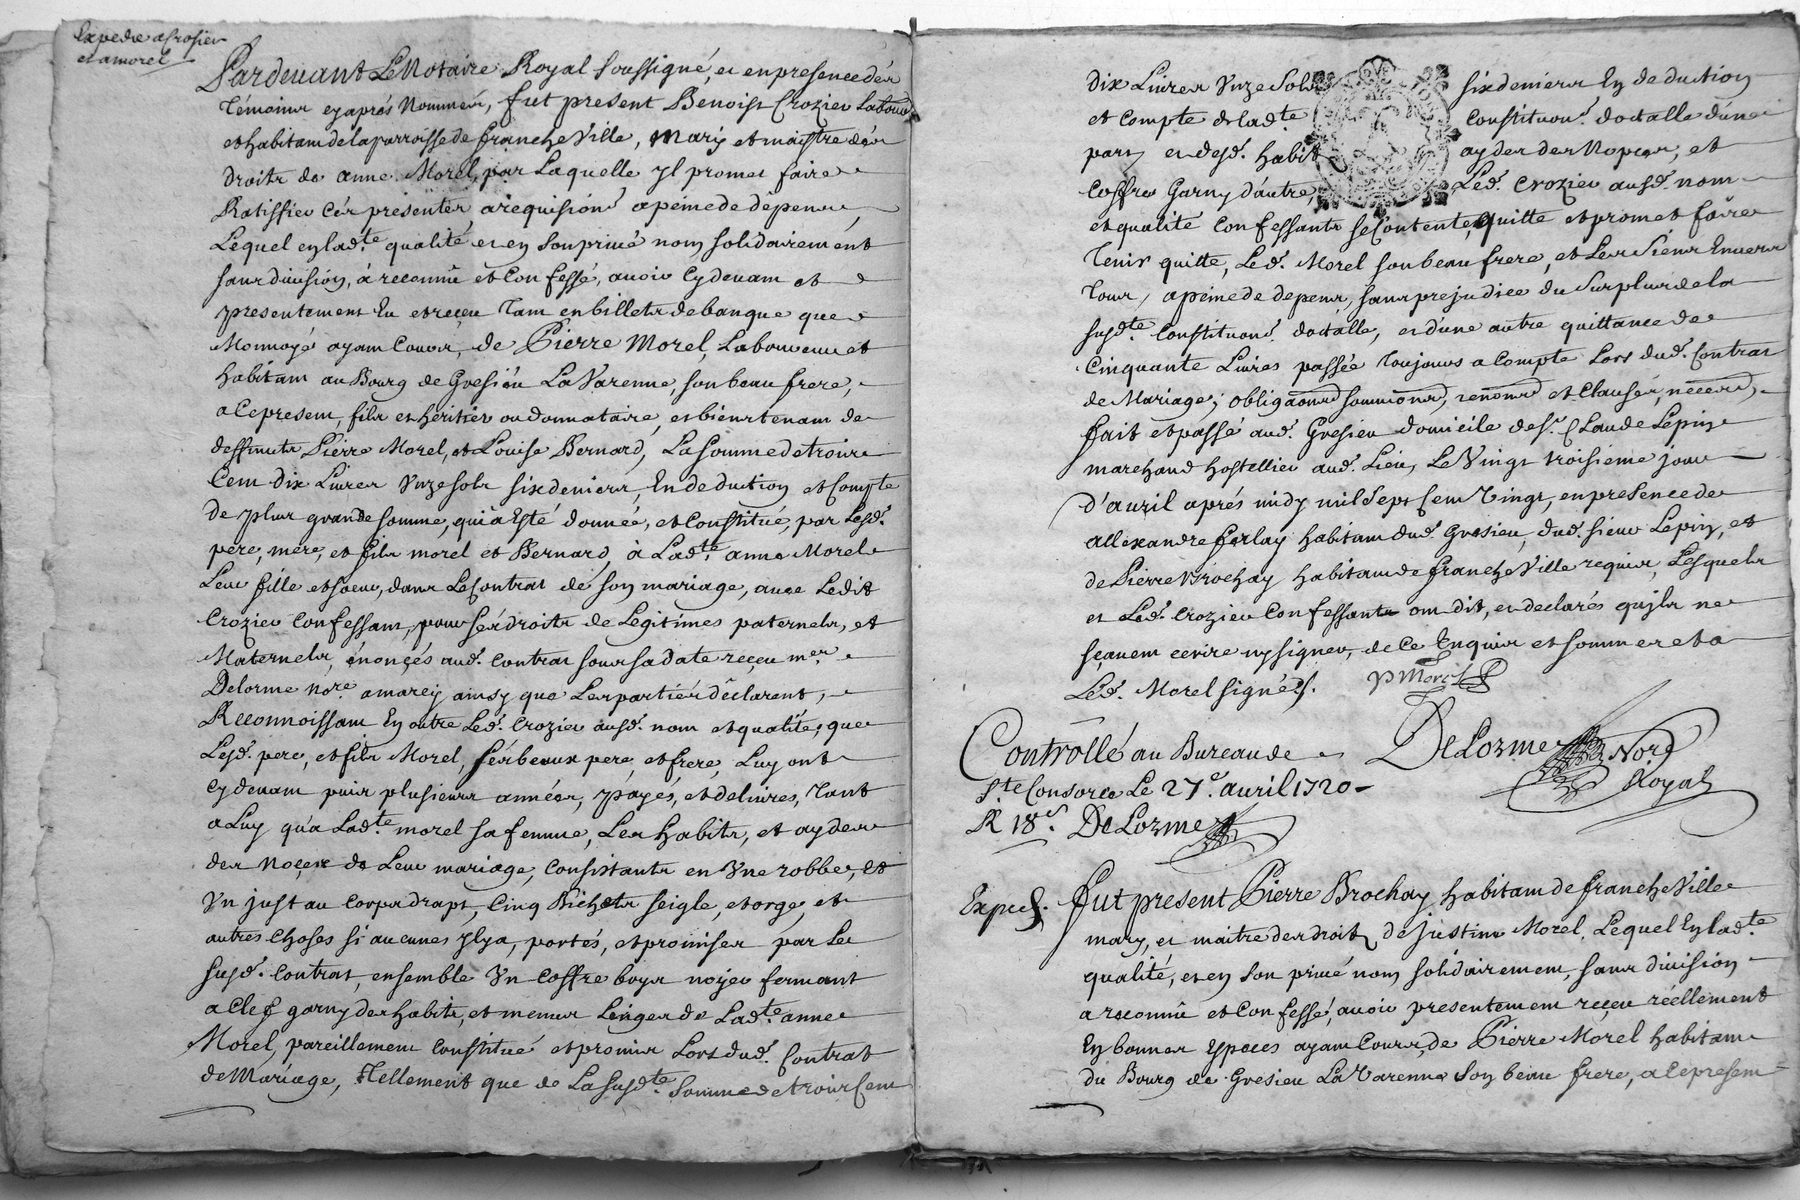 Expedié a Crosier
et a morel
Pardevant Le Notaire Royal soussigné, et en presence des
Témoins cy aprés Nommés, fut present Benoist Crozier Labour
et habitant de la parroisse de francheville, Mary et maistre des
droits de anne Morel, par Laquelle Il promet faire
Ratiffier Ces presentes a requision a peine de dépens,
Lequel eylad.te qualité et en son privé nom solidairement
sans division, à reconnû et Confessé, avoir Cy devant et
presentement Eu et reçeu Tant en billets de banque que
Monnoyé ayant Cours, de Pierre Morel, Laboureur et
habitant au Bourg de Gresieu La Varenne, son beau frere,
a Ce present, fils et héritier ou donnataire, et biens tenant de
deffunts Pierre Morel, et Louise Bernard, La somme de trois
Cent dix Livres Unze sols six deniers, En deduction et Compte
de plus grande somme, qui a Esté donnée, et Constitué, par Lesd.
pere, mere, et fils morel et Bernard, à Lad.te anne Morel
Leur fille et soeur, dans Le Contrat de son mariage, avec Ledit
Crozier Confessant, pour ses droits de Legitimes paternels, et
Maternels, énonçés aud. Contrat sous sa date reçeu m.er
Delorme No.re amareiy ainsy que Les parties déclarent,
Reconnoissant En outre Led. Crozier ausd. nom et qualité, que
Lesd. pere, et fils Morel, ses beaux pere, et frere, Luy ont
Cy devant puis plusieurs années, payés, et delivrés, Tant
a Luy qu'a Lad.te morel sa femme, Les habits, et ayde
des Noçes de Leur mariage, Consistants en Une robbe, et
Un just au Corps drapt, Cinq Bichets seigle, et orge, et
autres Choses si aucunes Il y a, portés, et promises par Le
susd. Contrat, ensemble Un Coffre boys noyer fermant
a Clef garny des habits, et menus Linges de Lad.te anne
Morel, pareillement Constitué et promis Lors dud. Contrat
de Mariage, Tellement que de La susd.te Somme de trois Cent
dix Livres Unze Sols six deniers En deduction
et Compte de lad.te Constituon. dotalle d'une
part, et desd. habits ayde des Nopces, et
Coffre Garny d'autre, Led. Crozier ausd. nom
et qualité Confessants se Contente, quitte et promet faire
Tenir quitte, Led. Morel son beau frere, et Les Siens Envers
Tous, a peine de depens, sans prejudice du Surplus de la
susd.te Constituon. dotalle, et d'une autre quittance de
Cinquante Livres passée Toujours a Compte Lors dud. Contrat
de Mariage; obligaons soumions, renons et Clauses, necess,
fait et passé aud. Gresieu domicile de s.r Claude Lepin
marchand hostellier aud. Lieu, Le Vingt troisieme jour
d'avril aprés midy mil Sept Cent Vingt, en presence de
allexandre ferlay habitant dud. Gresieu, dud. sieur Lepin, et
de Pierre Brochay habitant de francheville requis, Lesquels
et Led. Crozier Confessants ont dit, et declarés qu'ils ne
sçavent ecrire ny signer, de Ce Enquis et sommés et a
Led. Morel signé.
P Morel
Controllé au Bureau de
S.te Consorce Le 27.e avril 1720
R 18.s DeLorme
DeLorme Nore
Royal
Exped. fut present Pierre Brochay habitant de francheville
mary, et maitre des droits de justine Morel, Lequel Eylad.te
qualité, et en Son privé nom solidairement, sans division
a reconnû et Confessé, avoir presentement reçeu réellement
En bonnes Especes ayant Cours, de Pierre Morel habitant
du Bourg de Gresieu La Varenne Son beau frere, a Ce present